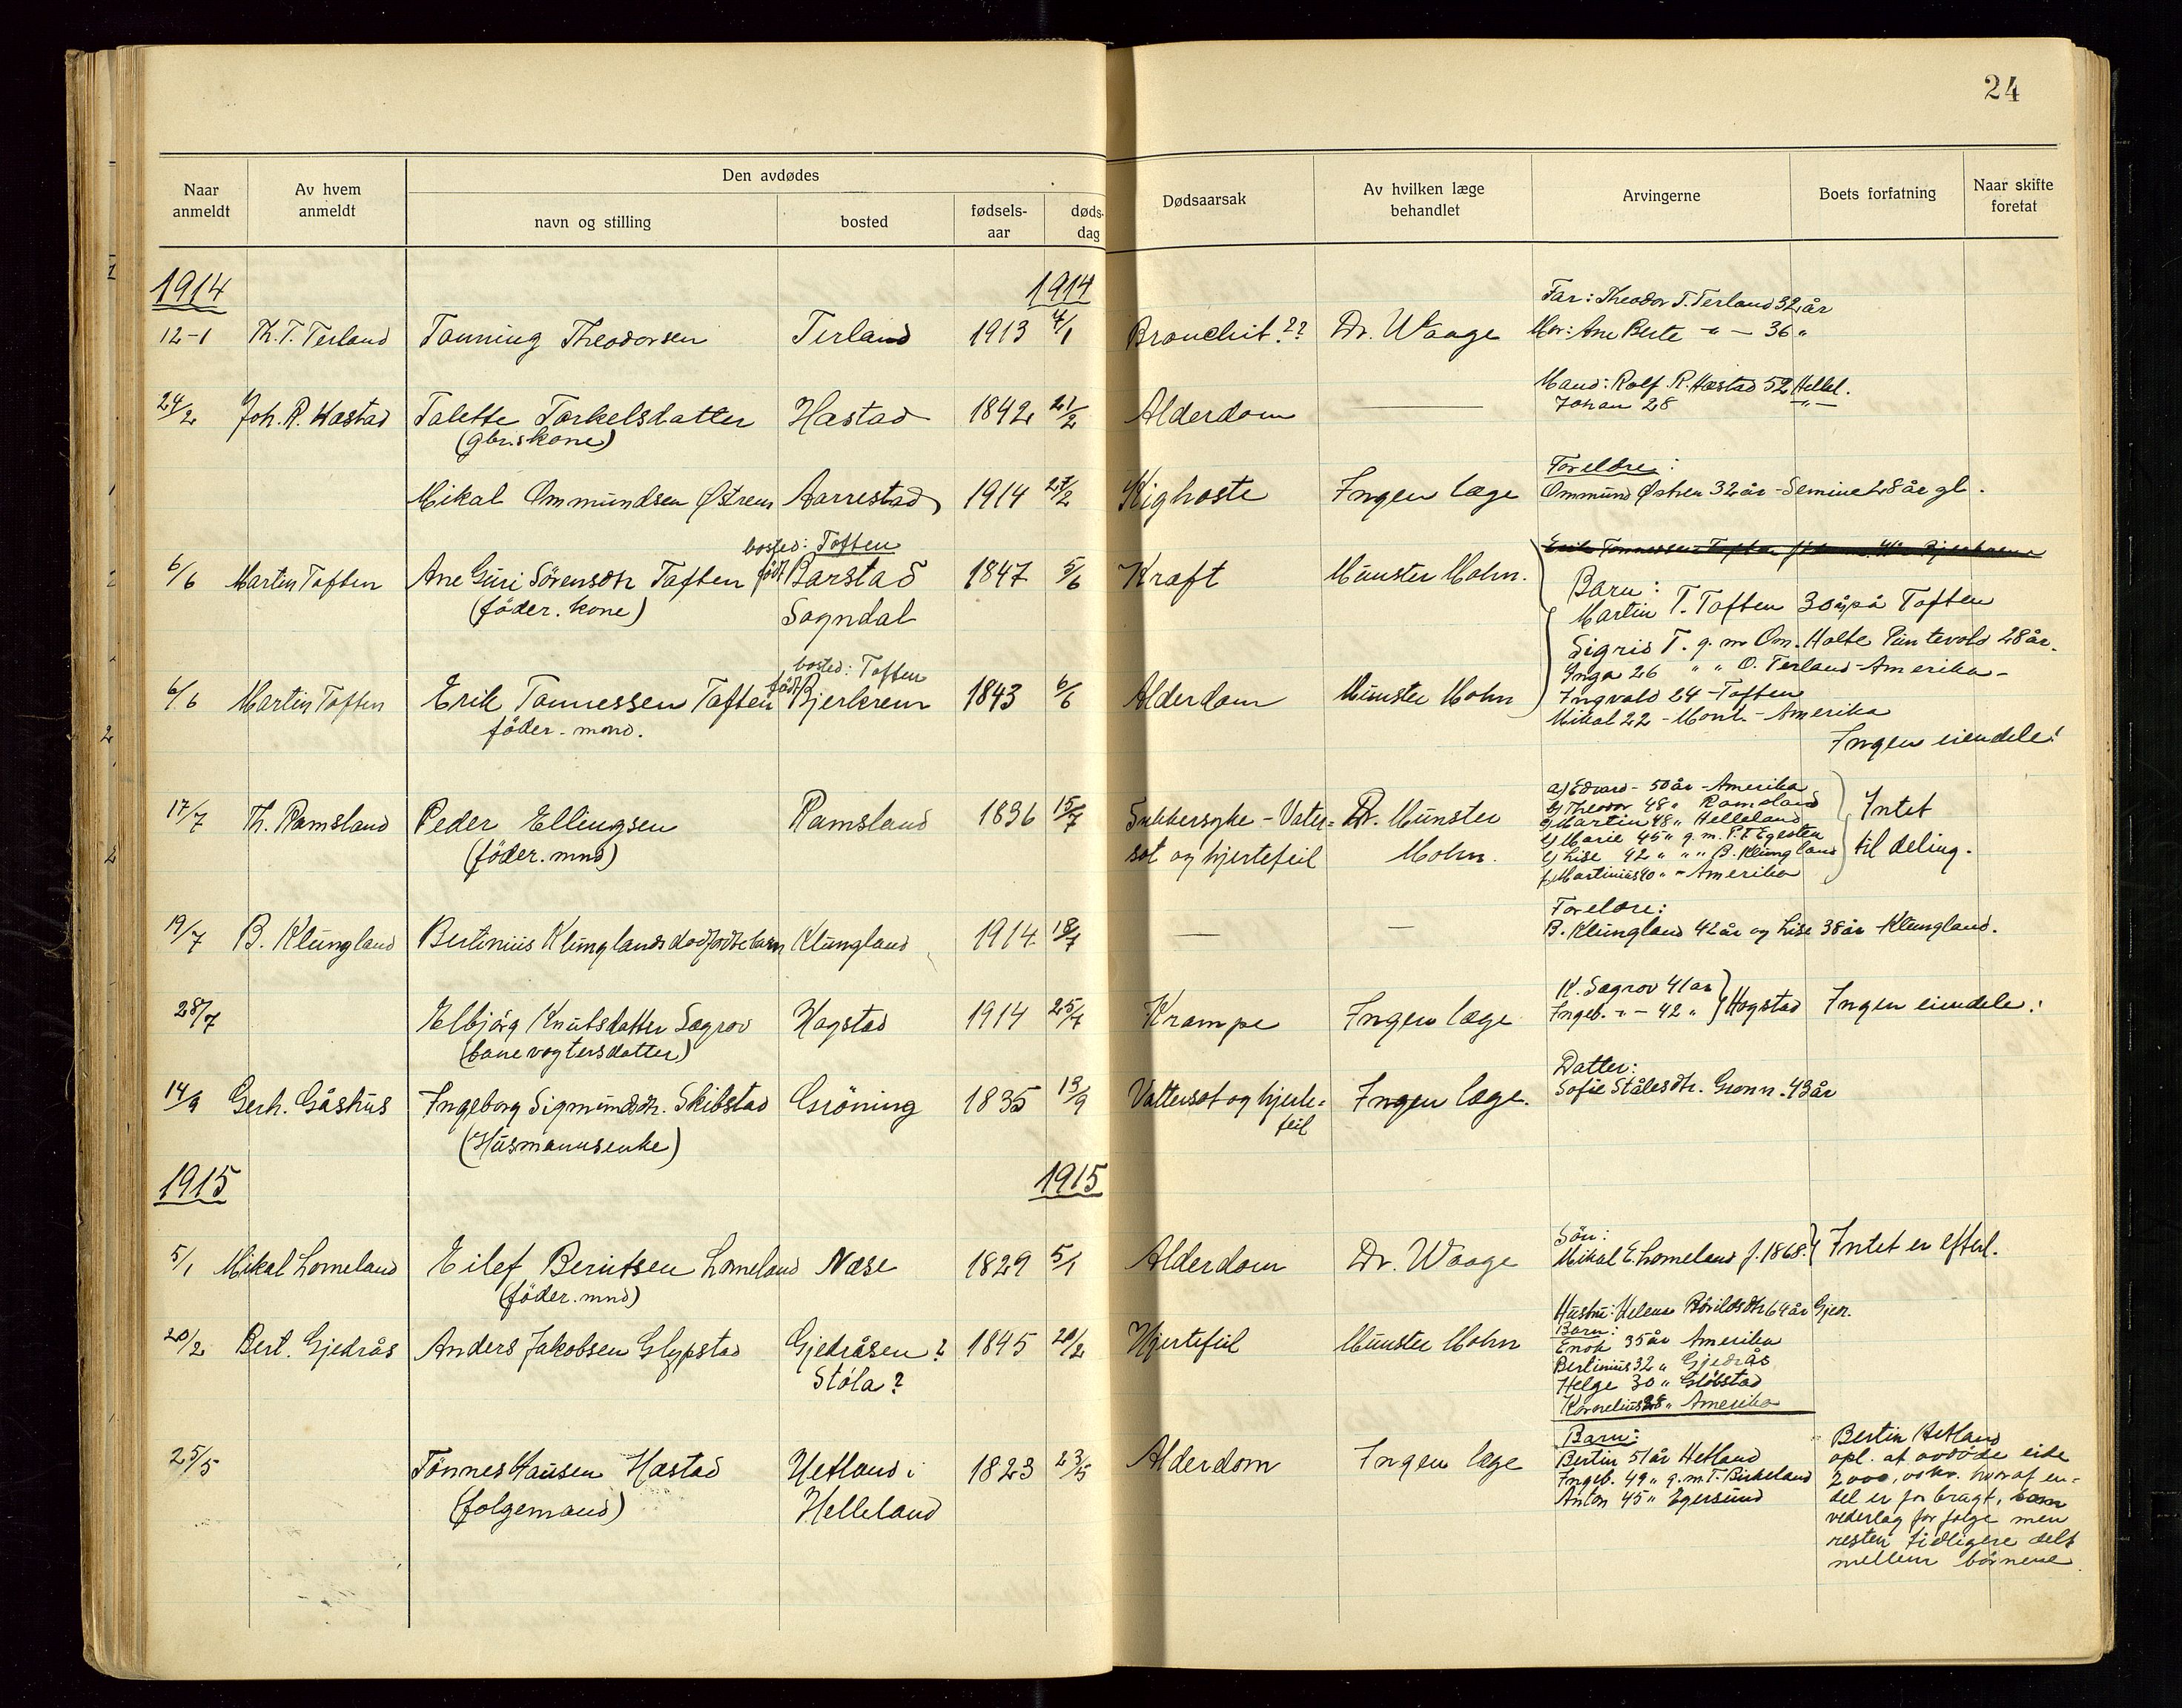 24
Naar anmeldt
Av hvem anmeldt
Den avdødes
navn og stilling
bosted
fødsels-aar
døds-dag
Dødsaarsak
Av hvilken læge behandlet
Arvingerne
Boets forfatning
Naar skifte foretat
1914 1914
Far: Theodor T. Terland 32 år
12-1 Th. T. Terland Tønning Theodorsen Terland 1913 /1 Bronchit?? Dr. Waage Mor: Ane Berte -"- 36 "
Mand: Rolf R. Hæstad 52 Hellel.
24/2 Joh. R. Hæstad Talette Torkelsdatter Hæstad 1842 21/2 Alderdom — Johan 28 -"-
(gbr.s kone)
Foreldre:
Mikal Ommundsen Østrem Aarrestad 1914 27/2 Kighoste Ingen læge Ommund Østrem 32 år - Semine 28 år gl.
bosted: Toften
6/6 Martin Toften Ane Guri Sörensdtr Toften født Barstad 1847 5/6 Kræft Münster Mohn.
(föder. kone) Sogndal
Barn:
Martin T. Toften 30 å på Toften
Sigrid T. g. m Om. Holte Puntevold 28 år.
bosted: Toften
Inga 26 " " O. Terland - Amerika -
6/6 Martin Toften Erik Tønnessen Toften født Bjerkrem 1843 6/6 Alderdom Münster Mohn Ingvald 24 - Toften
föder. mand. Mikal 22 - Mont. - Amerika
Ingen eiendele!
a) Edvard - 50 år - Amerika
b) Theodor 48 " Ramsland
17/7 Th. Ramsland Peder Ellingsen Ramsland 1836 15/7 Sukkersyke - Vater= Dr. Münster c) Martin 48 " Helleland Intet
(föder. mnd) sot og hjertefeil Mohn. d) Marie 45 " g. m. P. T. Egesten
e) Lise 42 " " " B. Klungland til deling.
f) Martinius 40 " - Amerika
Foreldre:
19/7 B. Klungland Bertinius Klunglands dødfødte barn Klungland 1914 18/7 — — B. Klungland 42 år og Lise 38 år - Klungland.
K. Sagrov 41 år
28/7 Elbjörg Knutsdatter Sagrov Hogstad 1914 25/7 Krampe Ingen læge Ingeb. -"- 42 " Hogstad Ingen eiendele!
(banevogtersdatter)
Datter:
14/9 Gerh. Gåshus Ingeborg Sigmundsdtr. Skibstad Gröning 1835 13/9 Vattersot og hjerte= Ingen læge. Sofie Stålesdtr. Grønn. 43 år
(Husmannsenke) feil
1915 1915
Sön:
5/1 Mikal Lomeland Eilef Berntsen Lomeland Næse 1829 5/1 Alderdom Dr. Waage Mikal E. Lomeland f. 1868. Intet er efterl.
(föder. mnd)
Hustru: Helene 64 år Gjedr.
Barn:
20/2 Bert. Gjedrås Anders Jakobsen Glypstad Gjedråsen? 1845 20/2 Hjertefeil Münster Mohn Enok 35 år Amerika
Støla? Bertinius 32 " Gjedrås
Helge 30 " Glöbstad
Kornelius 28 " Amerika
Barn:
25/5 Tönnes Hansen Hæstad Hetland i 1823 23/5 Alderdom Ingen læge Bertin 51 år Hetland
(folgemand) Helleland Ingeb. 49 " g. m. T. Birkeland
Anton 45 " Egersund
Bertin Hetland
opl. at avdöde eide
2000,00 kr. hvoraf en=
del er forbragt, som
vederlag for folge men
resten tidligere delt
mellem børnene.